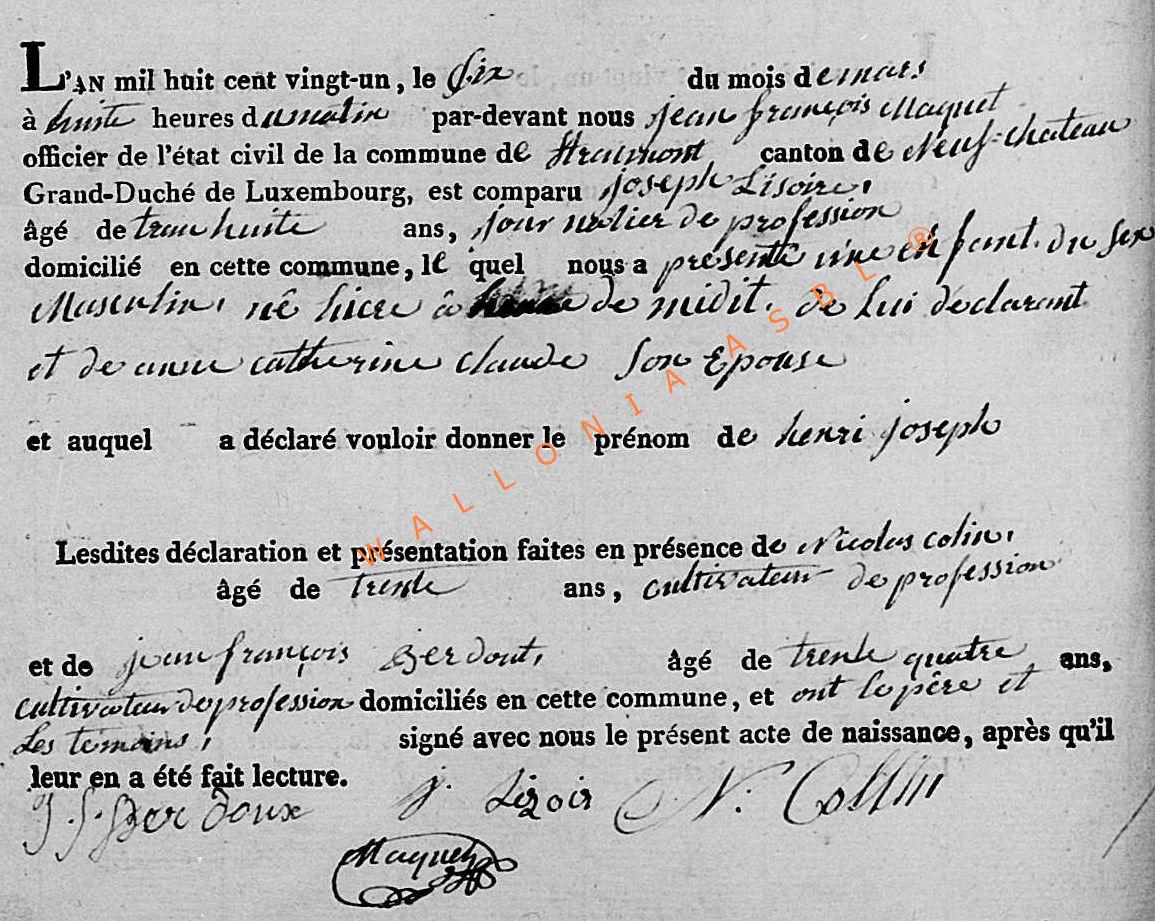 L'AN mil huit cent vingt-un, le six du mois de mars
à huite heures du matin par-devant nous jean françois Maquet
officier de l'état civil de la commune de Straimont, canton de Neuf-chateau
Grand-Duché de Luxembourg, est comparu joseph Lisoire,
âgé de tranhuite ans, journalier de profession
domicilié en cette commune, le quel nous a présenté une enfant du sex
Masculin, né hiere à de midit, de lui déclarant
et de anne catherine claude son Epouse
et auquel a déclaré vouloir donner le prénom de henri joseph
Lesdites déclaration et présentation faites en présence de Nicolas colin,
âgé de trente ans, cultivateur de profession
et de jean françois Berdout, âgé de trente quatre ans,
cultivateur de profession domiciliés en cette commune, et ont le père et
Les temoins, signé avec nous le présent acte de naissance, après qu'il
leur en a été fait lecture.
J. f. Berdoux j. Lizoir N. Collin
Maquet
WALLONIA ASBL ®